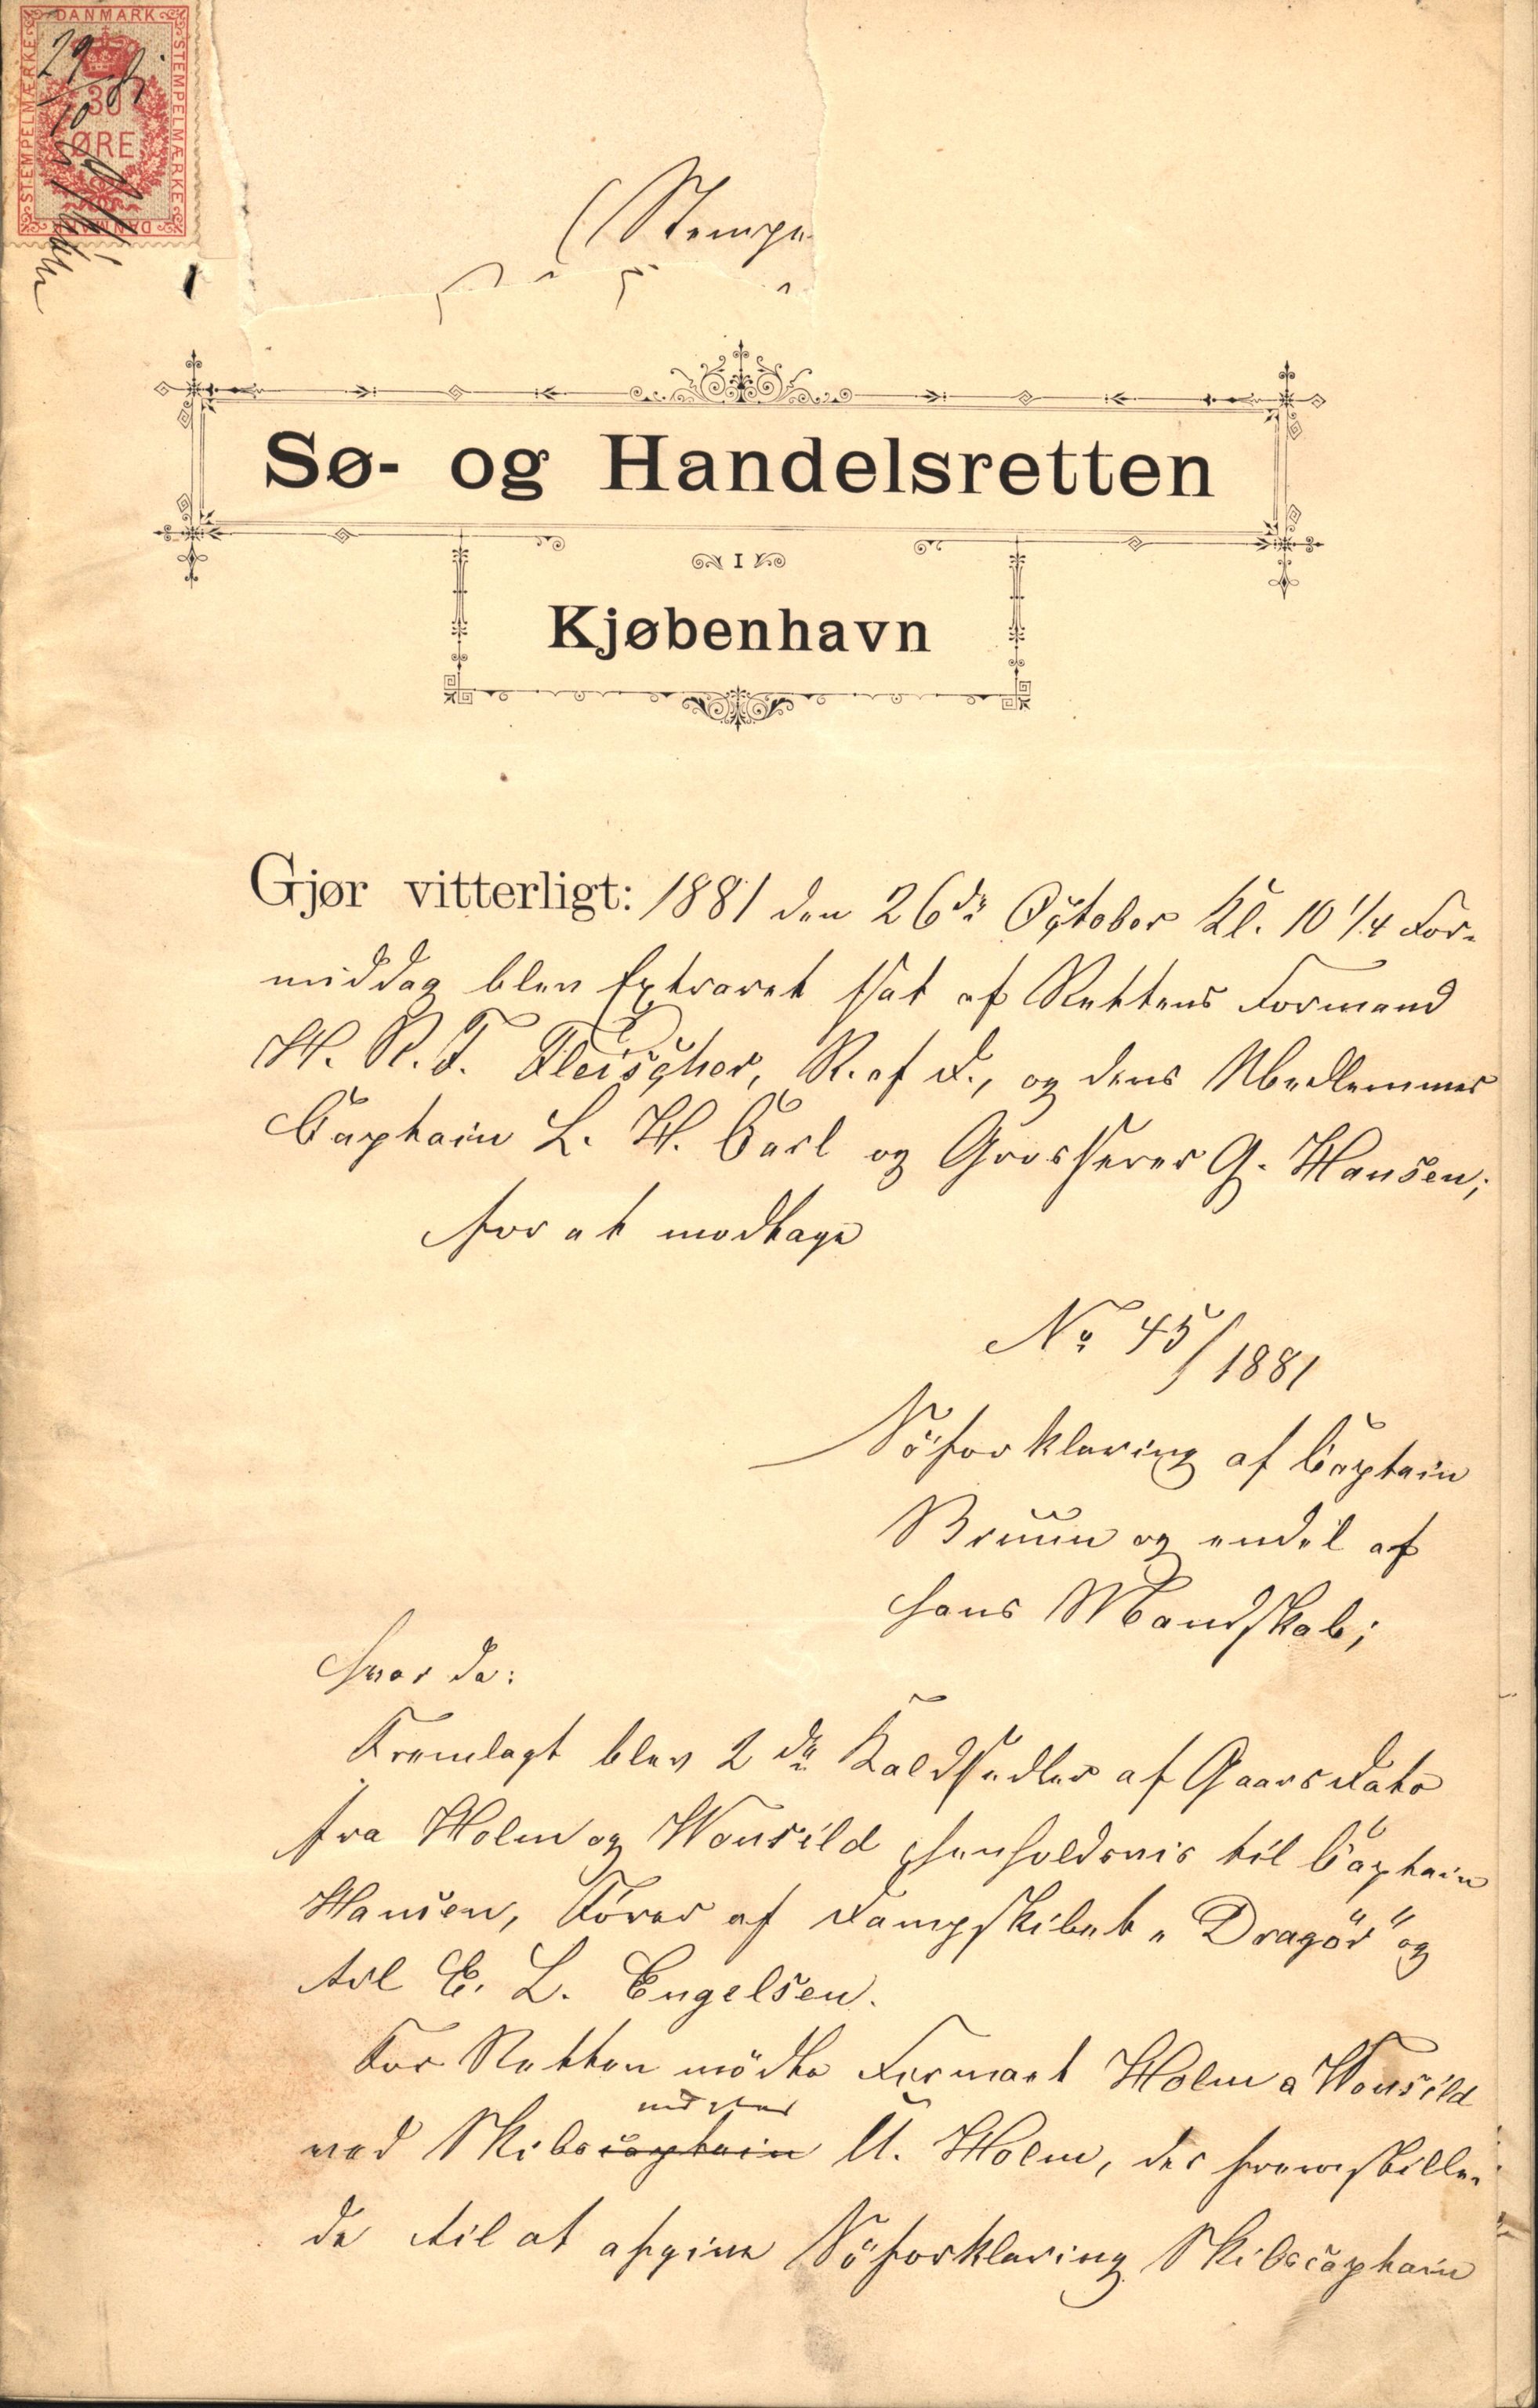 DANMARK
STEMPELMÆRKE
STEMPELMÆRKE
30
ØRE
DANMARK
29/10 81
(Stempe
Sø- og Handelsretten
I
Kjøbenhavn
Gjør vitterligt: 1881 den 26de October Kl. 10 1/4 For-
middag blev Extraret sat af Rettens Formand
H. R. F. Fleischer, R. af D., og dens Medlemmer
Captain L. H. Carl og Grosserer G. Hansen;
for at modtage
No 45/1881
Söforklaring af Captain
Bruun og endel af
hans Mandskab;
hvor da:
Fremlagt blev 2de Kaldsedler af Gaars Dato
fra Holm og Wonsild henholdsvis til Captain
Hansen, Förer af Dampskibet „Dragör" og
til E. L. Engelsen.
For Retten mödte Firmaet Holm & Wonsild
mægler
ved Skibscaptain U. Holm, der fremstille-
de til at afgive Söforklaring Skibscaptain